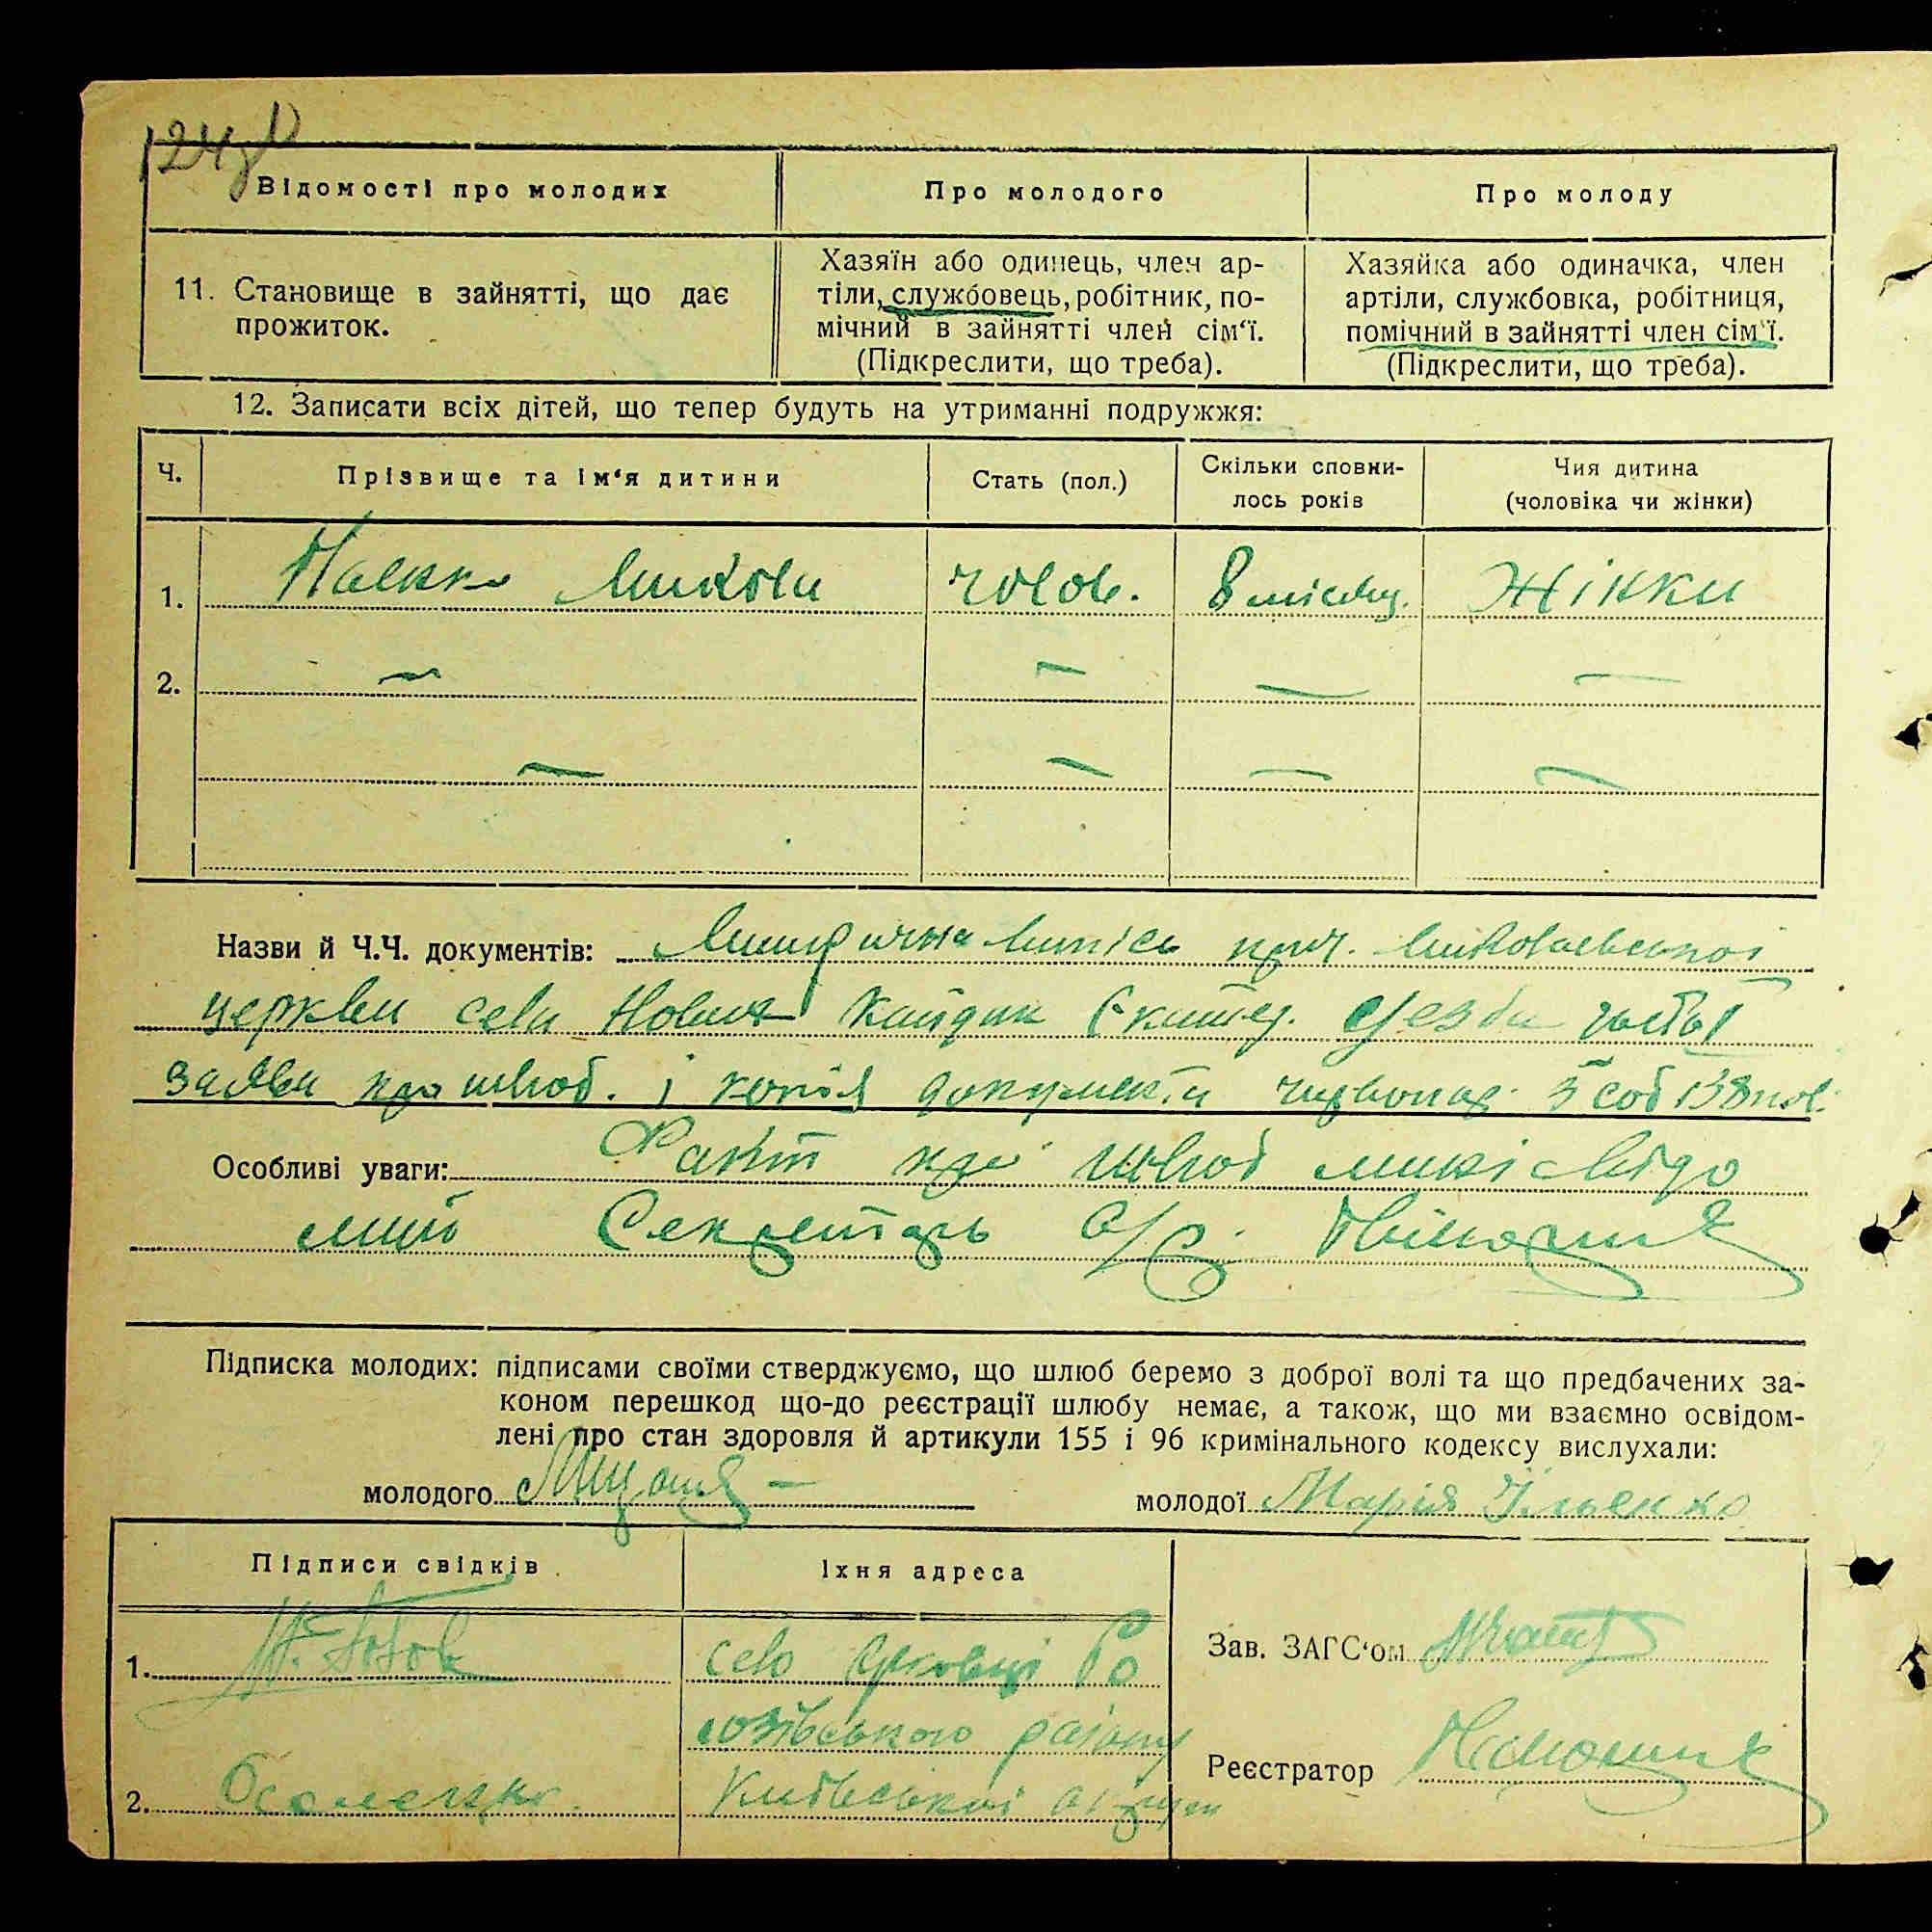 Відомості про молодих
Про молодого
Про молоду
11. Становище в зайнятті, що дає
прожиток.
Хазяїн або одинець, член ар-
тіли, службовець, робітник, по-
мічний в зайнятті член сім'ї.
(Підкреслити, що треба).
Хазяйка або одиначка, член
артіли, службовка, робітниця,
помічний в зайнятті член сім'ї.
(Підкреслити, що треба).
12. Записати всіх дітей, що тепер будуть на утриманні подружжя:
Ч.
Прізвище та ім'я дитини
Стать (пол.)
Скільки сповни-
лось років
Чия дитина
(чоловіка чи жінки)
1.
Микола
чолов.
8 місяц.
Жінки
2.
Назви й Ч.Ч. документів: Метрична випись прич. Миколаєвської
церкви села Нових Кайдак
заява про шлюб. і копія документа
Особливі уваги: Факт про шлюб мині відо
мий Секретарь с/р.
Підписка молодих: підписами своїми стверджуємо, що шлюб беремо з доброї волі та що предбачених за-
коном перешкод що-до реєстрації шлюбу немає, а також, що ми взаємно освідом-
лені про стан здоровля й артикули 155 і 96 кримінального кодексу вислухали:
молодого
молодої Марія Ільенко
Підписи свідків
Їхня адреса
1.
село
району
2.
Київської округи
Зав. ЗАГС'ом
Реєстратор